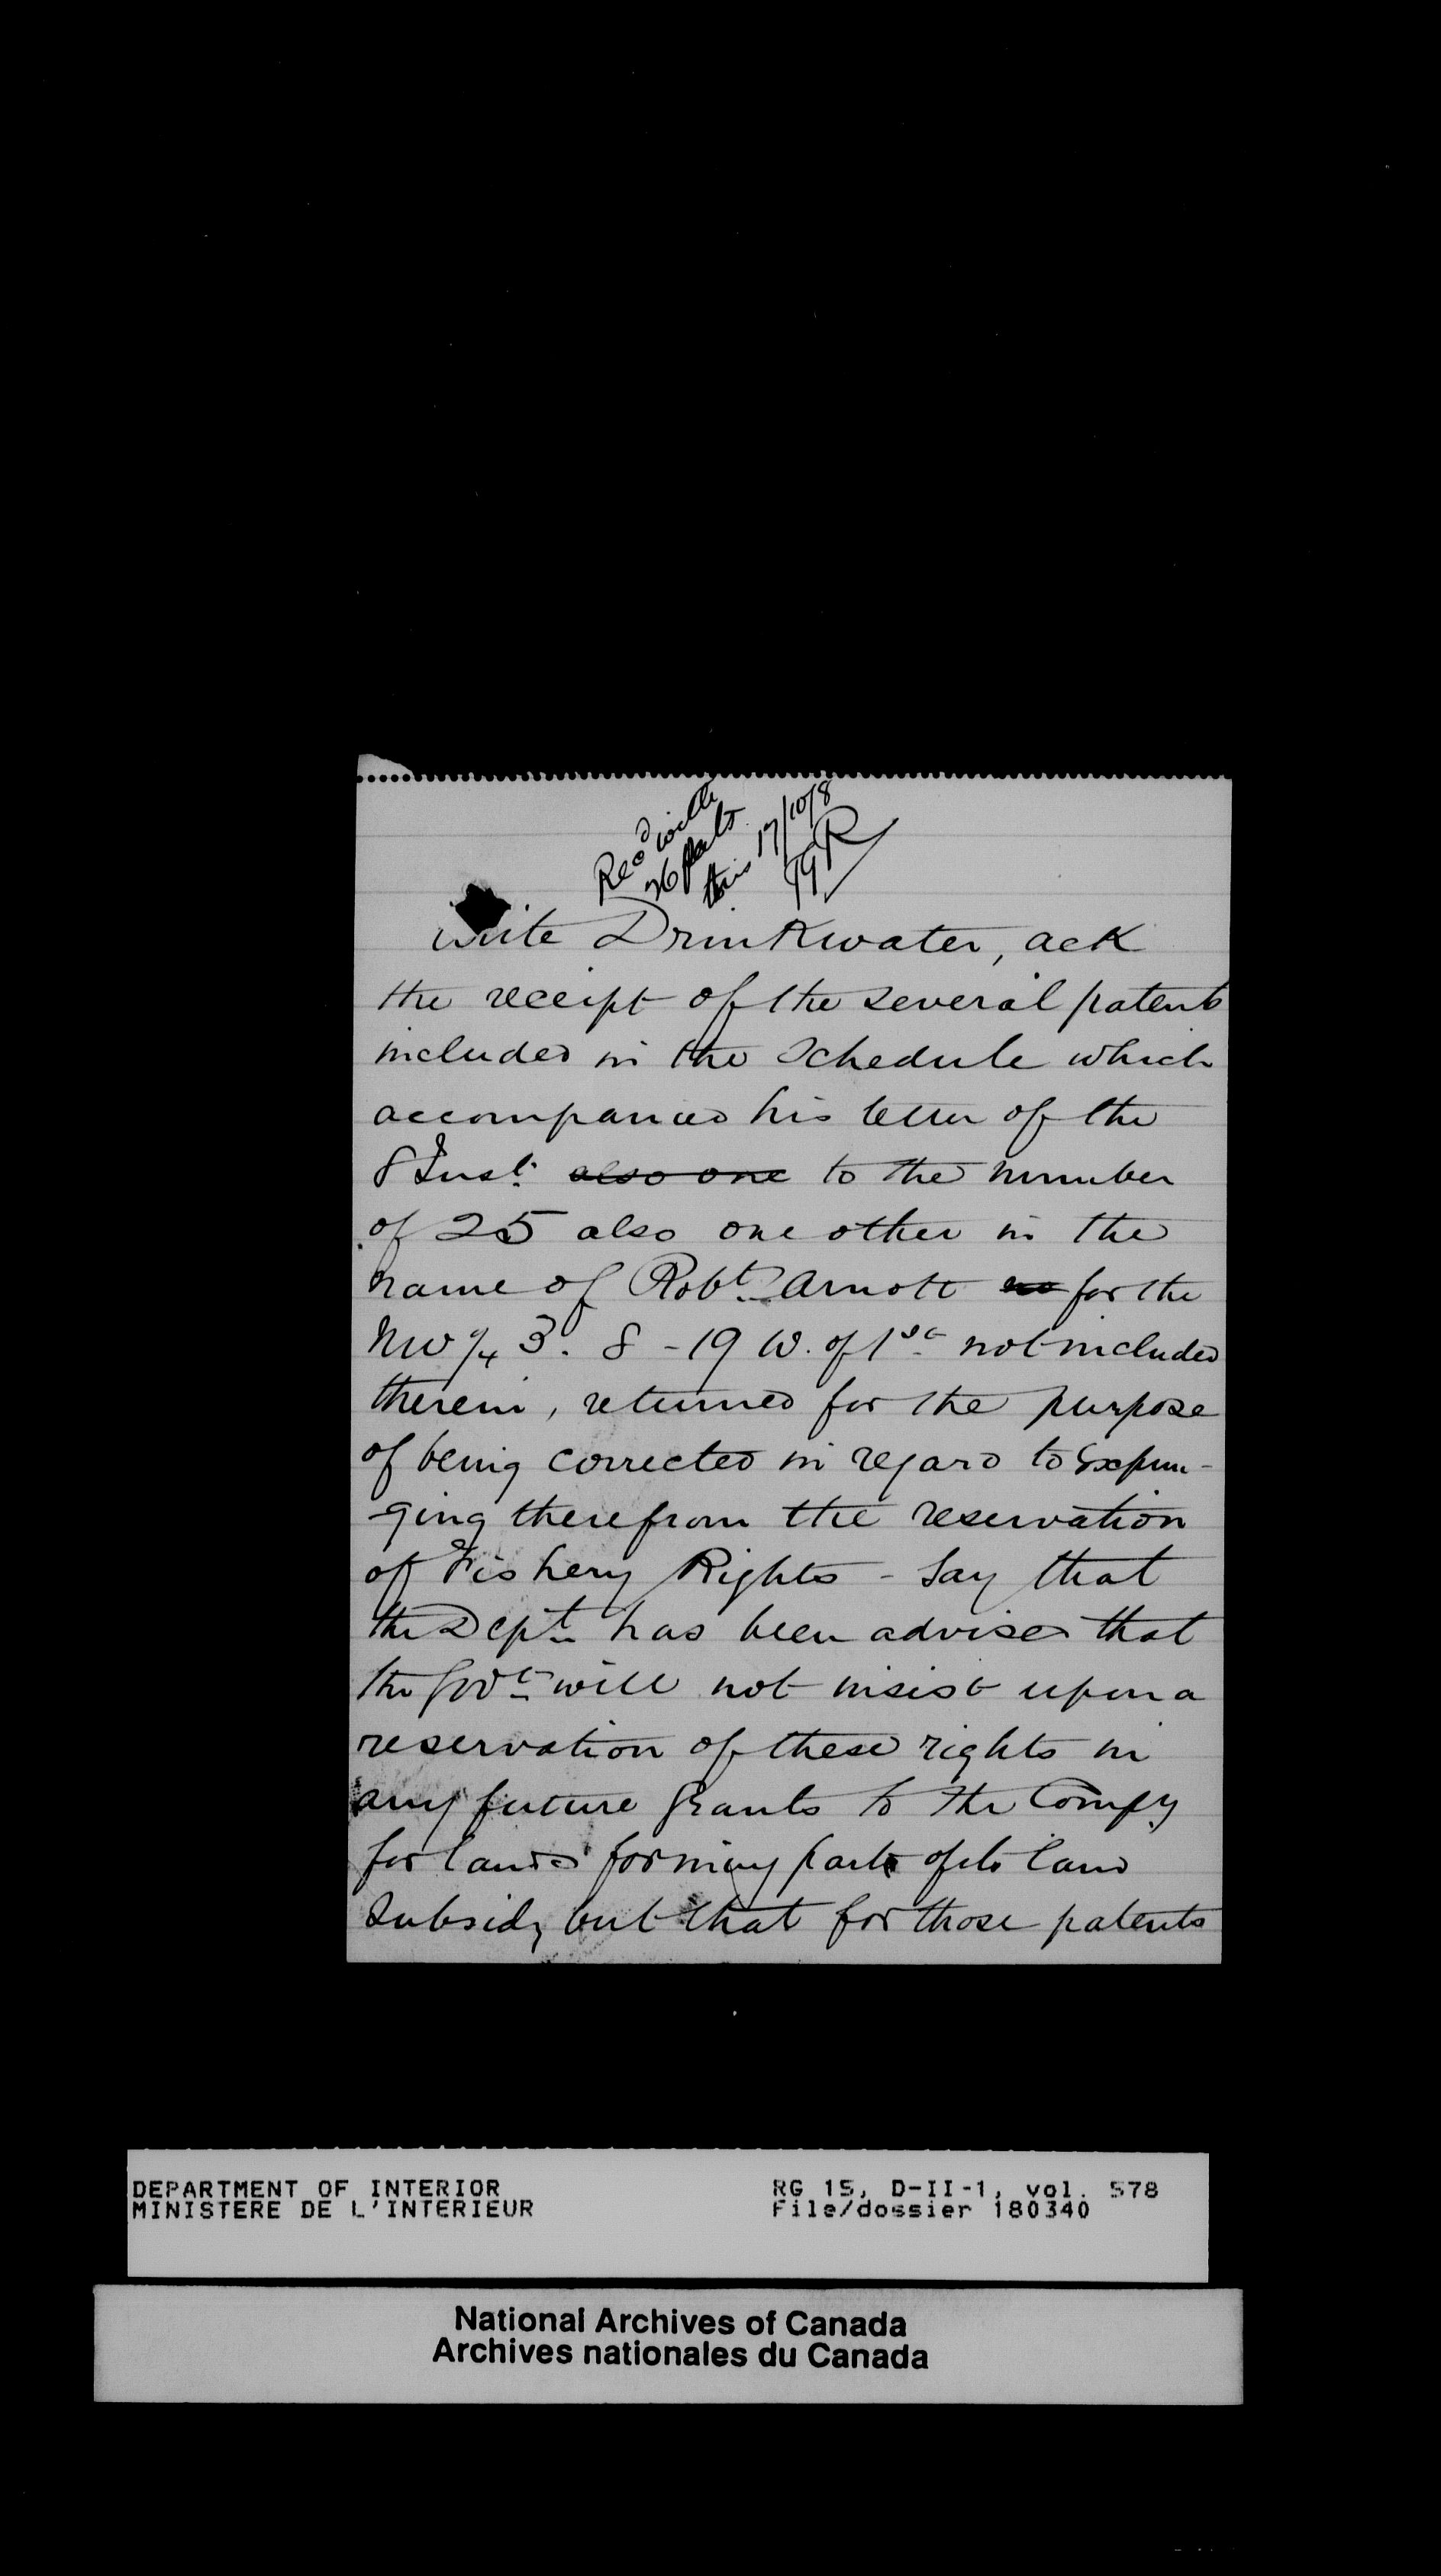 Recd with
26 pats
this 17/10/8
Write Drinkwater, ack
the receipt of the several patents
included in the Schedule which
accompanied his letter of the
8 Inst. also one to the number
of 25 also one other in the
name of Robt. Arnott for the
NW 1/4 3. 8 - 19 W. of 1st not included
therein, returned for the purpose
of being corrected in regard to Expun-
-ging therefrom the reservation
of Fishery Rights - Say that
the Dept. has been advised that
the Govt. will not insist upon a
reservation of these rights in
any future Grants to the Compy
for lands forming part of its land
Subsidy but that for those patents
DEPARTMENT OF INTERIOR
MINISTERE DE L'INTERIEUR
RG 15, D-II-1, vol. 578
File/dossier 180340
National Archives of Canada
Archives nationales du Canada